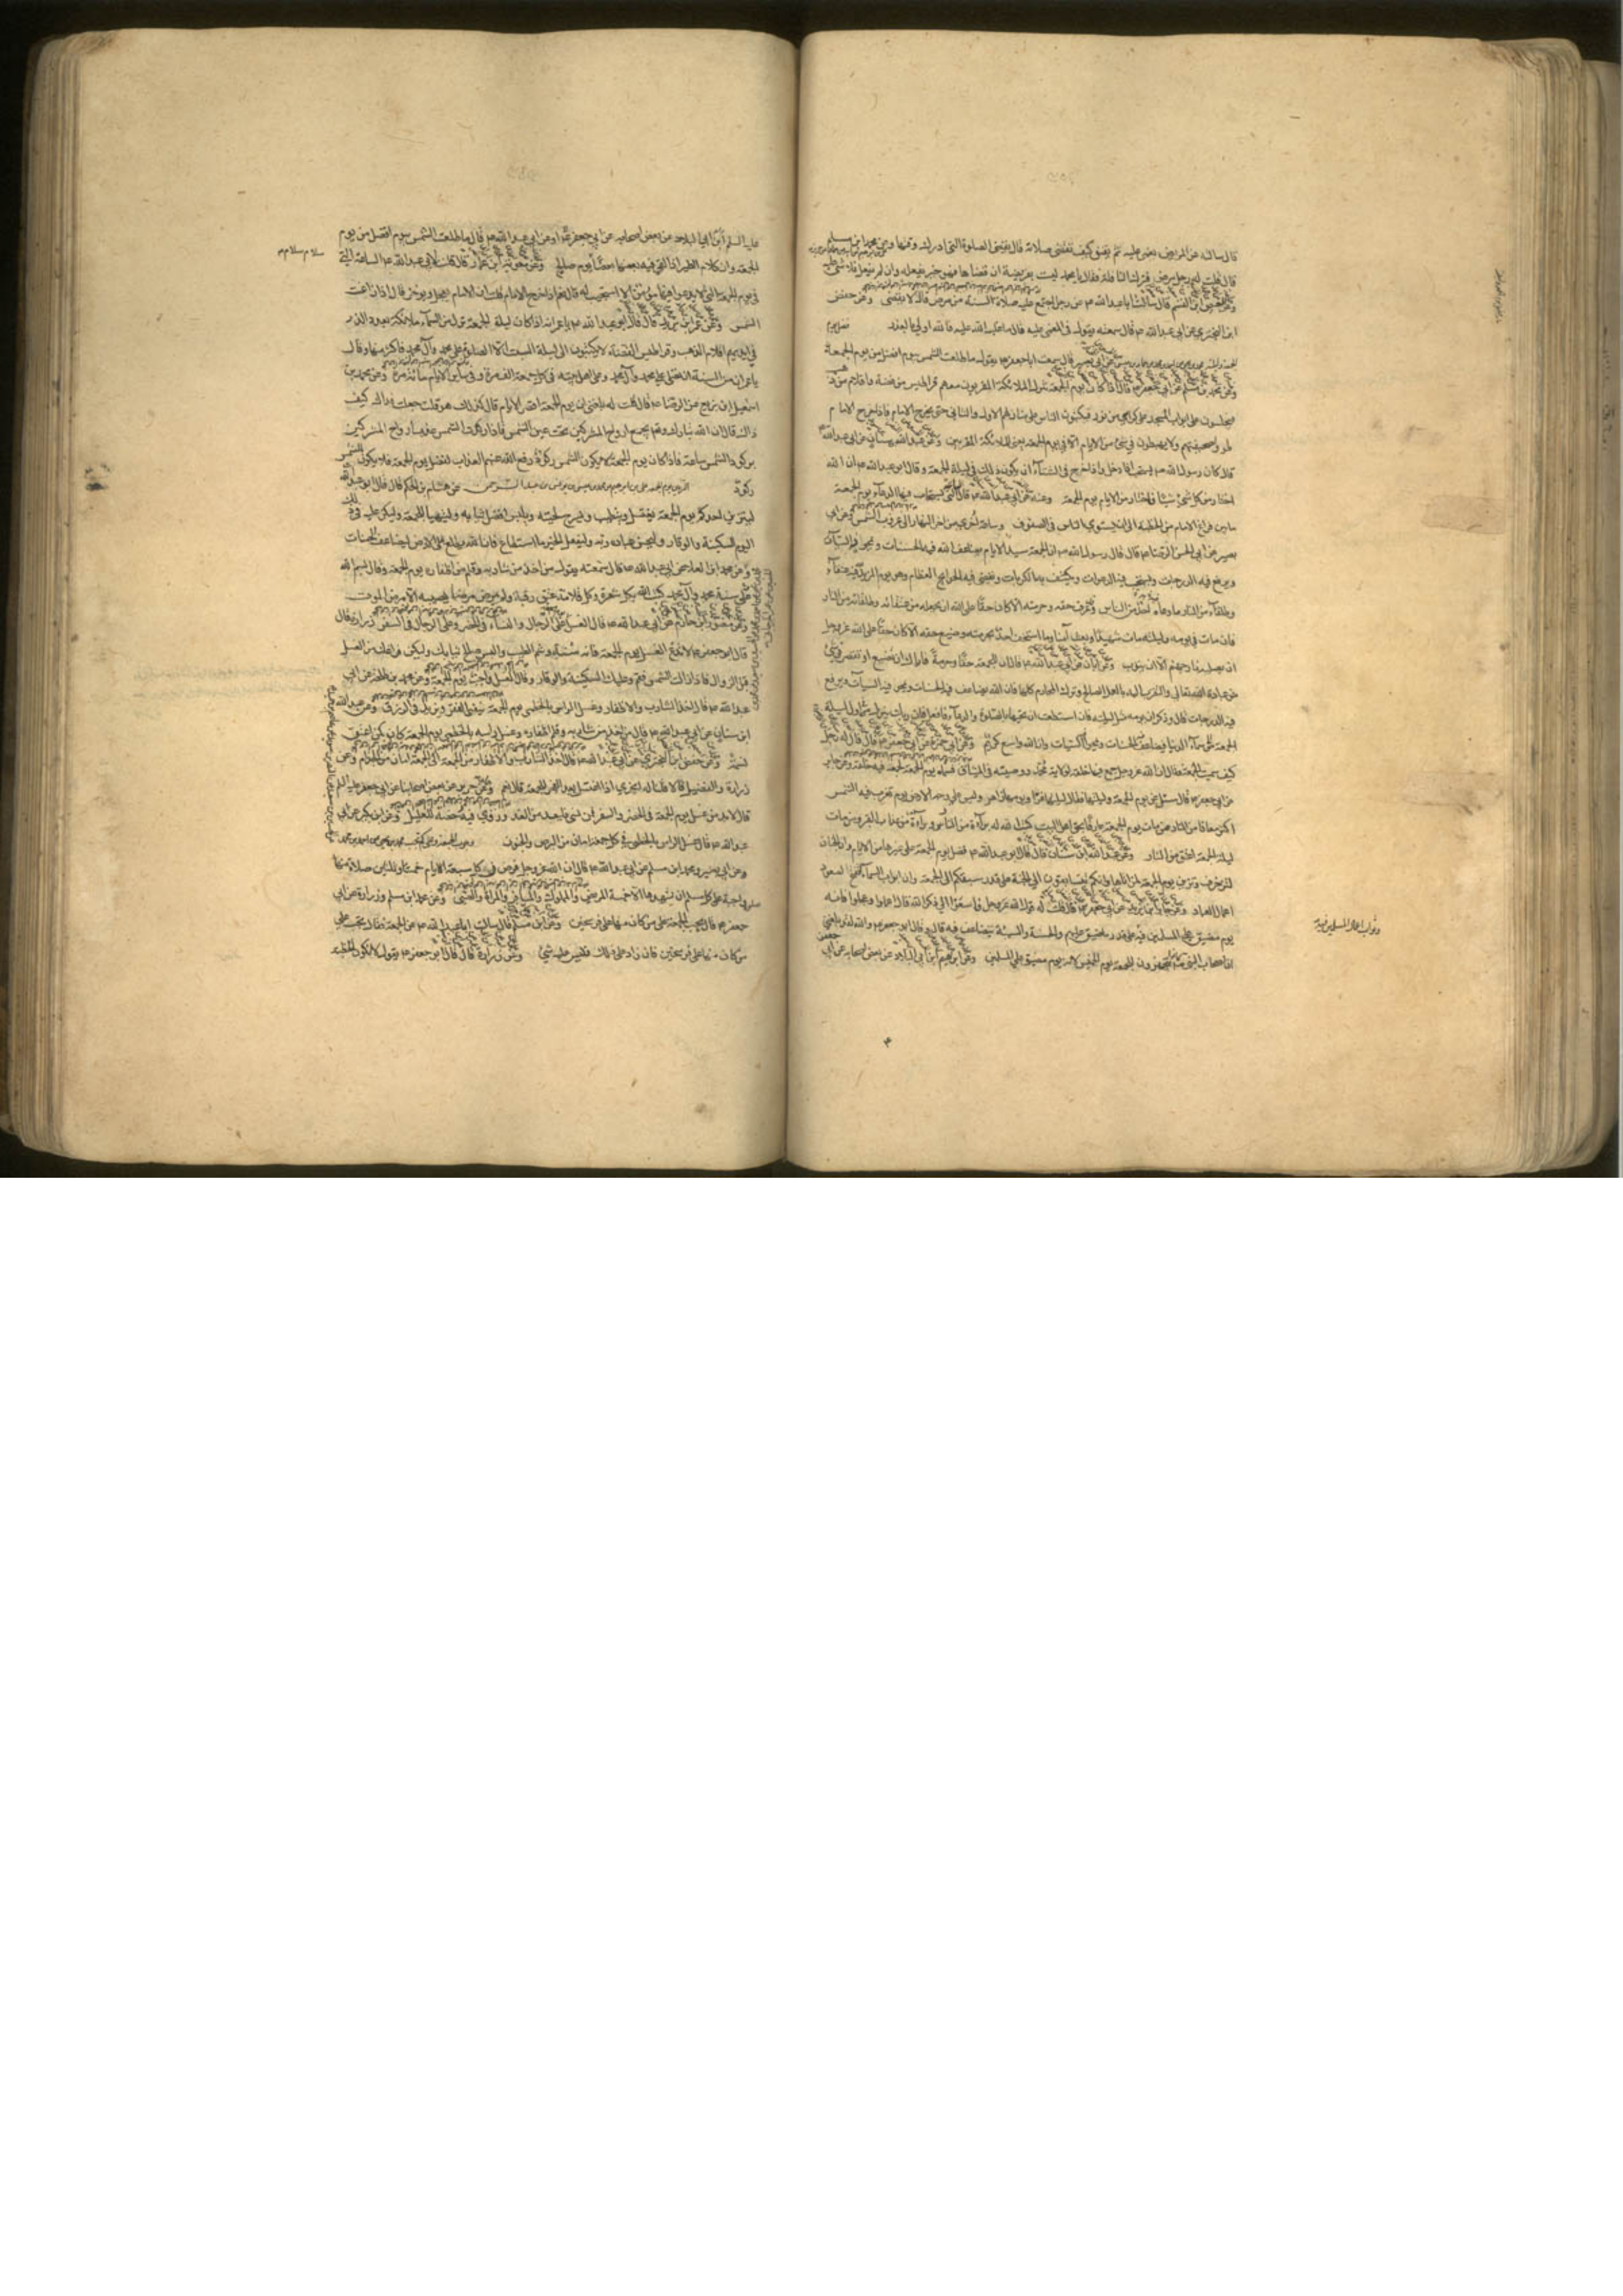 قال سألته عن المريض يغمى عليه ثم يفيق كيف يقضي صلاته قال يقضي الصلوة التي ادرك وقتها وعن محمد ابن مسلم
قال قلت له رجل مرض فترك النافلة فقال يا محمد ليست بفريضة ان قضاها فهو خير يفعله وان لم يفعل فلا شئ عليه
وعن عيص ابن القسم قال سألت ابا عبد الله ع عن رجل اجتمع عليه صلاة السنة من مرض قال لا يقضي وعن حفص
ابن البختري عن ابي عبد الله ع قال سمعته يقول في المغمى عليه قال ما غلب الله عليه فالله اولى بالعذر
عن ابي بصير قال سمعت ابا جعفر ع يقول ما طلعت الشمس بيوم افضل من يوم الجمعة
وعن محمد بن مسلم عن ابي جعفر ع قال اذا كان يوم الجمعة نزل الملائكة المقربون معهم قراطيس من فضة واقلام من ذهب
فيجلسون على ابواب المسجد على كراسي من نور فيكتبون الناس على منازلهم الاول والثاني حتى يخرج الامام فاذا خرج الامام
طووا صحفهم ولا يهبطون في شئ من الايام الا في يوم الجمعة يعني الملائكة المقربين وعن عبد الله بن سنان عن ابي عبد الله
قال كان رسول الله ص يستحب اذا دخل واذا خرج في الشتاء ان يكون ذلك في ليلة الجمعة وقال ابو عبد الله ع ان الله
اختار من كل شئ شيئا فاختار من الايام يوم الجمعة وعنه عن ابي عبد الله ع قال الساعة التي يستجاب فيها الدعاء يوم الجمعة
ما بين فراغ الامام من الخطبة الى ان يستوي الناس في الصفوف وساعة اخرى من اخر النهار الى غروب الشمس وعن ابي
بصير عن ابي الحسن الرضا ع قال قال رسول الله ص ان الجمعة سيد الايام يضاعف الله فيه الحسنات ويمحو فيه السيئات
ويرفع فيه الدرجات ويستجيب فيه الدعوات ويكشف به الكربات ويقضي فيه الحوائج العظام وهو يوم المزيد لله فيه عتقاء
وطلقاء من النار ما دعا به احد من الناس وعرف حقه وحرمته الا كان حقا على الله ان يجعله من عتقائه وطلقائه من النار
فان مات في يومه وليلته مات شهيدا وبعث آمنا وما استخف احد بحرمته وضيع حقه الا كان حقا على الله عز وجل
ان يصليه نار جهنم الا ان يتوب وعن ابان عن ابي عبد الله ع قال ان للجمعة حقا وحرمة فاياك ان تضيع او تقصر في شئ
من عبادة الله تعالى والتقرب اليه بالعمل الصالح وترك المحارم كلها فان الله يضاعف فيه الحسنات ويمحو فيه السيئات ويرفع
فيه الدرجات قال وذكر ان يومه مثل ليلته فان استطعت ان تحييها بالصلوة والدعاء فافعل فان ربك ينزل في اول ليلة
الجمعة الى سماء الدنيا فيضاعف الحسنات ويمحو السيئات وان الله واسع كريم وعن ابي حمزة عن ابي جعفر ع قال قال له رجل
كيف سميت الجمعة فقال ان الله عز وجل جمع فيها خلقه لولاية محمد ووصيه في الميثاق فسماه يوم الجمعة لجمعه فيه خلقه وعن جابر
عن ابي جعفر ع قال سئل عن يوم الجمعة وليلتها فقال ليلتها غراء ويومها ازهر وليس على وجه الارض يوم تغرب فيه الشمس
اكثر معافا من النار من مات يوم الجمعة عارفا بحق اهل البيت كتب الله له براءة من النار وبراءة من عذاب القبر ومن مات
ليلة الجمعة اعتق من النار وعن عبد الله ابن سنان قال قال ابو عبد الله ع فضل يوم الجمعة على غيرها من الايام وان الجنان
لتزخرف وتزين يوم الجمعة لمن اتاها وانكم تتسابقون الى الجنة على قدر سبقكم الى الجمعة وان ابواب السماء لتفتح لصعود
اعمال العباد وعن جابر ابن يزيد عن ابي جعفر ع قال قلت له قول الله عز وجل فاسعوا الى ذكر الله قال اعملوا وعجلوا فانه
يوم مضيق على المسلمين فيه على قدر ما ضيق عليهم والحسنة والسيئة تضاعف فيه قال وقال ابو جعفر ع والله لقد بلغني
ان اصحاب النبي ص كانوا يتجهزون للجمعة يوم الخميس لانه يوم مضيق على المسلمين وعن ابراهيم ابن ابي البلاد عن بعض اصحابه عن ابي جعفر
وثواب اعمال المسلمين فيه
عليه السلم ابن ابي البلاد عن بعض اصحابه عن ابي جعفر ع او عن ابي عبد الله ع قال ما طلعت الشمس بيوم افضل من يوم
الجمعة وان كلام الطير اذا لقي فيه بعضها بعضا سلام سلام يوم صالح وعن معوية ابن عمار قال قلت لابي عبد الله ع الساعة التي
سلام سلام م
في يوم الجمعة التي لا يدعو فيها مؤمن الا استجيب له قال نعم اذا خرج الامام قلت ان الامام يعجل ويؤخر قال اذا زاغت
الشمس وعن عمر ابن يزيد قال قال ابو عبد الله ع يا عمر انه اذا كان ليلة الجمعة نزل من السماء ملائكة بعدد الذر
في ايديهم اقلام الذهب وقراطيس الفضة لا يكتبون الى ليلة السبت الا الصلوة على محمد وآل محمد فاكثر منها وقال
يا عمر ان من السنة ان تصلي على محمد وآل محمد وعلى اهل بيته في كل جمعة الف مرة وفي سائر الايام مائة مرة وعن محمد بن
اسمعيل ابن بزيع عن الرضا ع قال قلت له بلغني ان يوم الجمعة اقصر الايام قال كذلك هو قلت جعلت فداك كيف
ذاك قال ان الله تبارك وتع يجمع ارواح المشركين تحت عين الشمس فاذا ركدت الشمس عذب ارواح المشركين
بركود الشمس ساعة فاذا كان يوم الجمعة لا يكون للشمس ركود رفع الله عنهم العذاب لفضل يوم الجمعة فلا يكون للشمس
ركود عن هشام بن الحكم قال قال ابو عبد الله
ليتزين احدكم يوم الجمعة يغتسل ويتطيب ويسرح لحيته ويلبس انظف ثيابه وليتهيأ للجمعة وليكن عليه في ذلك
اليوم السكينة والوقار وليحسن عبادة ربه وليفعل الخير ما استطاع فان الله يطلع على الارض ليضاعف الحسنات
وعن محمد ابن العلا عن ابي عبد الله ع قال سمعته يقول من اخذ من شاربه وقلم من اظفاره يوم الجمعة وقال بسم الله
على سنة محمد وآل محمد كتب الله له بكل شعرة وكل قلامة عتق رقبة ولم يمرض مرضا يصيبه الا مرض الموت
وعن منصور ابن حازم عن ابي عبد الله ع قال الغسل على الرجال والنساء في الحضر وعلى الرجال في السفر زرارة قال
قال ابو جعفر ع لا تدع الغسل يوم الجمعة فانه سنة وشم الطيب والبس صالح ثيابك وليكن فراغك من الغسل
قبل الزوال فاذا زالت الشمس فقم وعليك السكينة والوقار وقال الغسل واجب يوم الجمعة وعن محمد بن طلحة عن ابي
عبد الله ع قال اخذ الشارب والاظفار وغسل الراس بالخطمي يوم الجمعة ينفي الفقر ويزيد في الرزق وعن عبد الله
ابن سنان عن ابي عبد الله ع قال من اخذ من شاربه وقلم اظفاره وغسل راسه بالخطمي يوم الجمعة كان كمن اعتق
نسمة وعن حفص ابن البختري عن ابي عبد الله ع قال اخذ الشارب والاظفار من الجمعة الى الجمعة امان من الجذام وعن
زرارة والفضيل قالا قلنا له ايجزي اذا اغتسل بعد الفجر للجمعة قال نعم وعن حريز عن بعض اصحابنا عن ابي جعفر عليه السلم
قال لا بد من غسل يوم الجمعة في الحضر والسفر فمن نسي فليعد من الغد وروي فيه رخصة للعليل وعن ابن بكير عن ابي
عبد الله ع قال غسل الراس بالخطمي في كل جمعة امان من البرص والجنون
وعن ابي بصير ومحمد ابن مسلم عن ابي عبد الله ع قال ان الله عز وجل فرض في كل سبعة الايام خمسا وثلثين صلاة منها
صلوة واجبة على كل مسلم ان يشهدها الا خمسة المريض والمملوك والمسافر والمرأة والصبي وعن محمد ابن مسلم وزرارة عن ابي
جعفر ع قال تجب الجمعة على من كان منها على فرسخين وعن ابن مسلم قال سألت ابا عبد الله ع عن الجمعة فقال تجب على
من كان منها على فرسخين فان زاد على ذلك فليس عليه شئ وعن زرارة قال قال ابو جعفر ع يقول لا تكون الخطبة